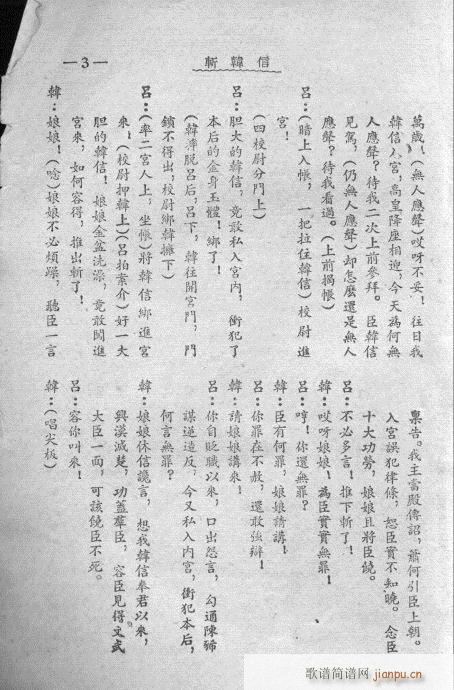 斬韓信
—3—
萬歲、(無人應聲)哎呀不妥！往日我
韓信入宮，高皇降座相迎，今天為何無
人應聲？待我二次上前參拜。臣韓信
見駕，(仍無人應聲)却怎麼還是無人
應聲？待我看過。(上前揭帳)
呂：(暗上入帳，一把拉住韓信)校尉進
宮！
(四校尉分門上)
呂：胆大的韓信，竟敢私入宮內，衝犯了
本后的金身玉體！綁了！
(韓摔脱呂后，呂下，韓往開宮門，門
鎖不得出，校尉綁韓擁下)
呂：(率二宮人上，坐帳)將韓信綁進宮
來！(校尉押韓上)(呂拍案介)好一大
胆的韓信！娘娘金盆洗澡，竟敢闖進
宮來，如何容得，推出斬了！
韓：娘娘！(唸)娘娘不必煩躁，聽臣一言
禀告。我主當殿傳詔，蕭何引臣上朝。
入宮誤犯律條，怒臣實不知曉。念臣
十大功勞，娘娘且將臣饒。
呂：不必多言！推下斬了！
韓：哎呀娘娘！為臣實實無罪！
呂：哼！你還無罪？
韓：臣有何罪，娘娘請講！
呂：你罪在不赦，還敢強辯！
韓：請娘娘講來！
呂：你自貶職以來，口出怨言，勾通陳豨
謀逆造反，今又私入内宮，衝犯本后，
何言無罪？
韓：娘娘休信讒言，想我韓信奉君以來，
興漢滅楚，功蓋羣臣，容臣見得文武
大臣一面，可該饒臣不死。
呂：容你叫來！
韓：(唱尖板)
歌谱简谱网
jianpu.cn